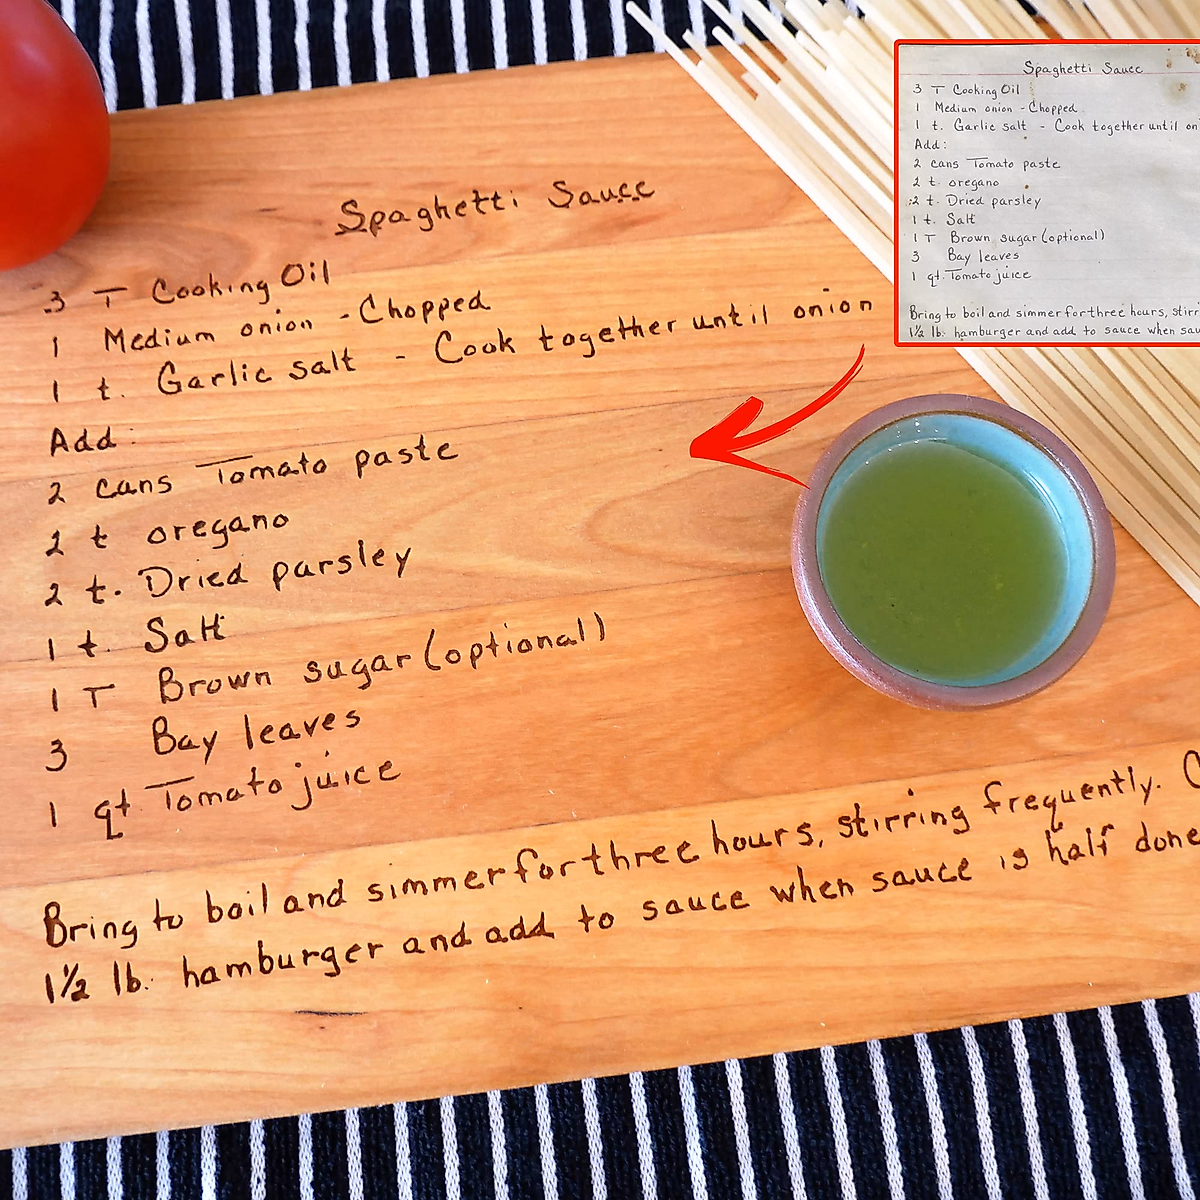 Spaghetti Sauce
3 T Cooking Oil
1 Medium onion - Chopped
1 t. Garlic salt - Cook together until onion
Add:
2 cans Tomato paste
2 t oregano
2 t. Dried parsley
1 t. Salt
1 T Brown sugar (optional)
3 Bay leaves
1 qt Tomato juice
Bring to boil and simmer for three hours, stirring frequently.
1½ lb. hamburger and add to sauce when sauce is half done
Spaghetti Sauce
3 T Cooking Oil
1 Medium onion - Chopped
1 t. Garlic salt - Cook together until
Add:
2 cans Tomato paste
2 t. oregano
2 t. Dried parsley
1 t. Salt
1 T Brown sugar (optional)
3 Bay leaves
1 qt. Tomato juice
Bring to boil and simmer for three hours,
1½ lb. hamburger and add to sauce when